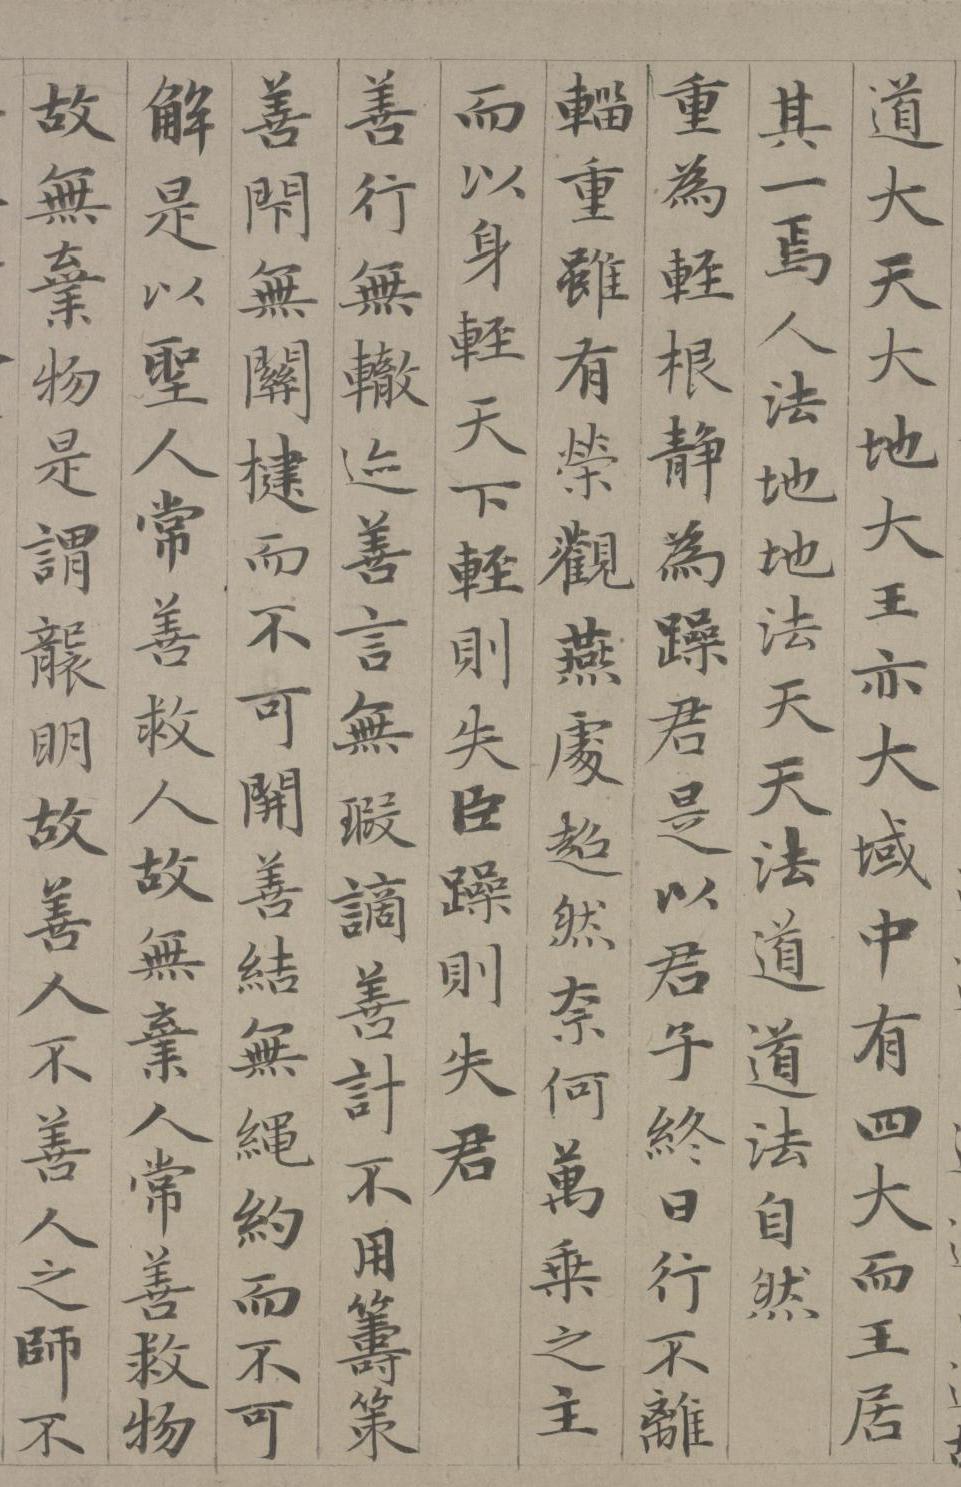 道大天大地大王亦大域中有四大而王居
其一焉人法地地法天天法道道法自然
重為輕根靜為躁君是以君子終日行不離
輜重雖有榮觀燕處超然奈何萬乘之主
而以身輕天下輕則失臣躁則失君
善行無轍迹善言無瑕謫善計不用籌策
善閇無關揵而不可開善結無繩約而不可
解是以聖人常善救人故無棄人常善救物
故無棄物是謂襲明故善人不善人之師不